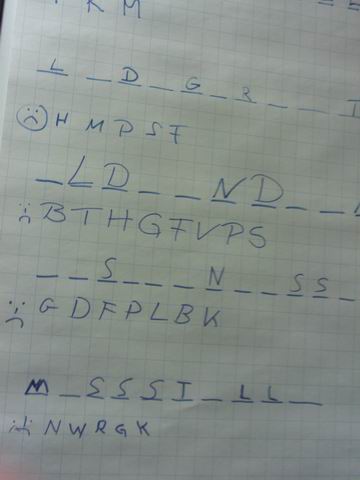 R M
L _ D _ G _ R _ _ I
H M P S F
_ L D _ _ N D _ _
B T H G F V P S
_ _ S _ _ _ N _ _ S S _
G D F P L B K
M _ S S S I _ L L _
N W R G K